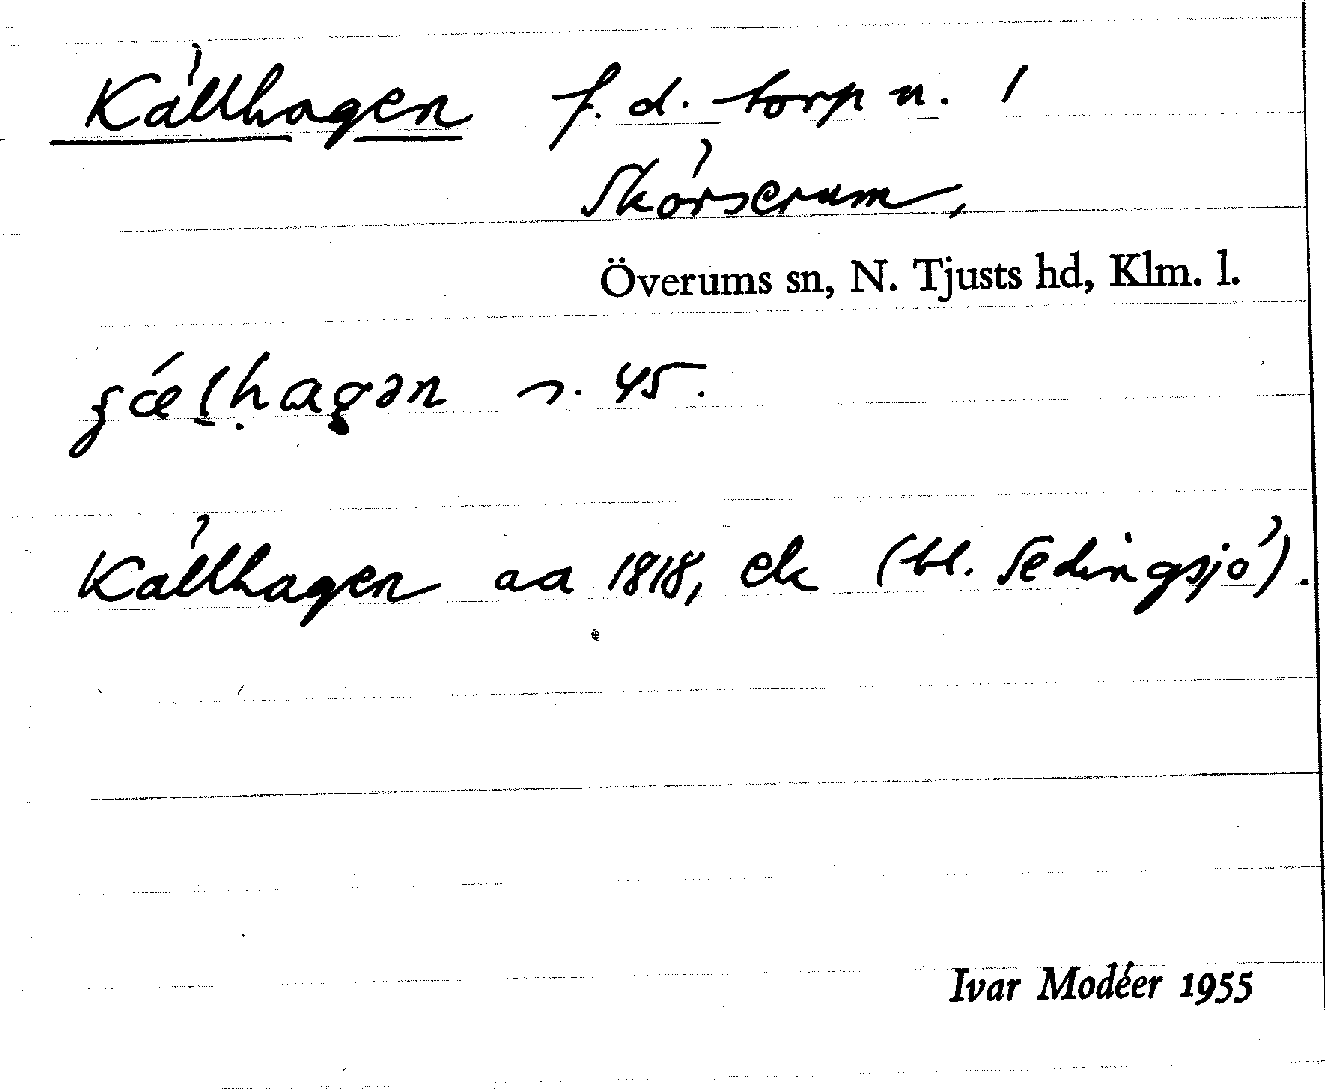 Källhagen f. d. torp u. 1
Skörserum,
Överums sn, N. Tjusts hd, Klm. l.
s. 45.
Källhagen aa 1818, ek (bl. Sedingsjö).
Ivar Modéer 1955